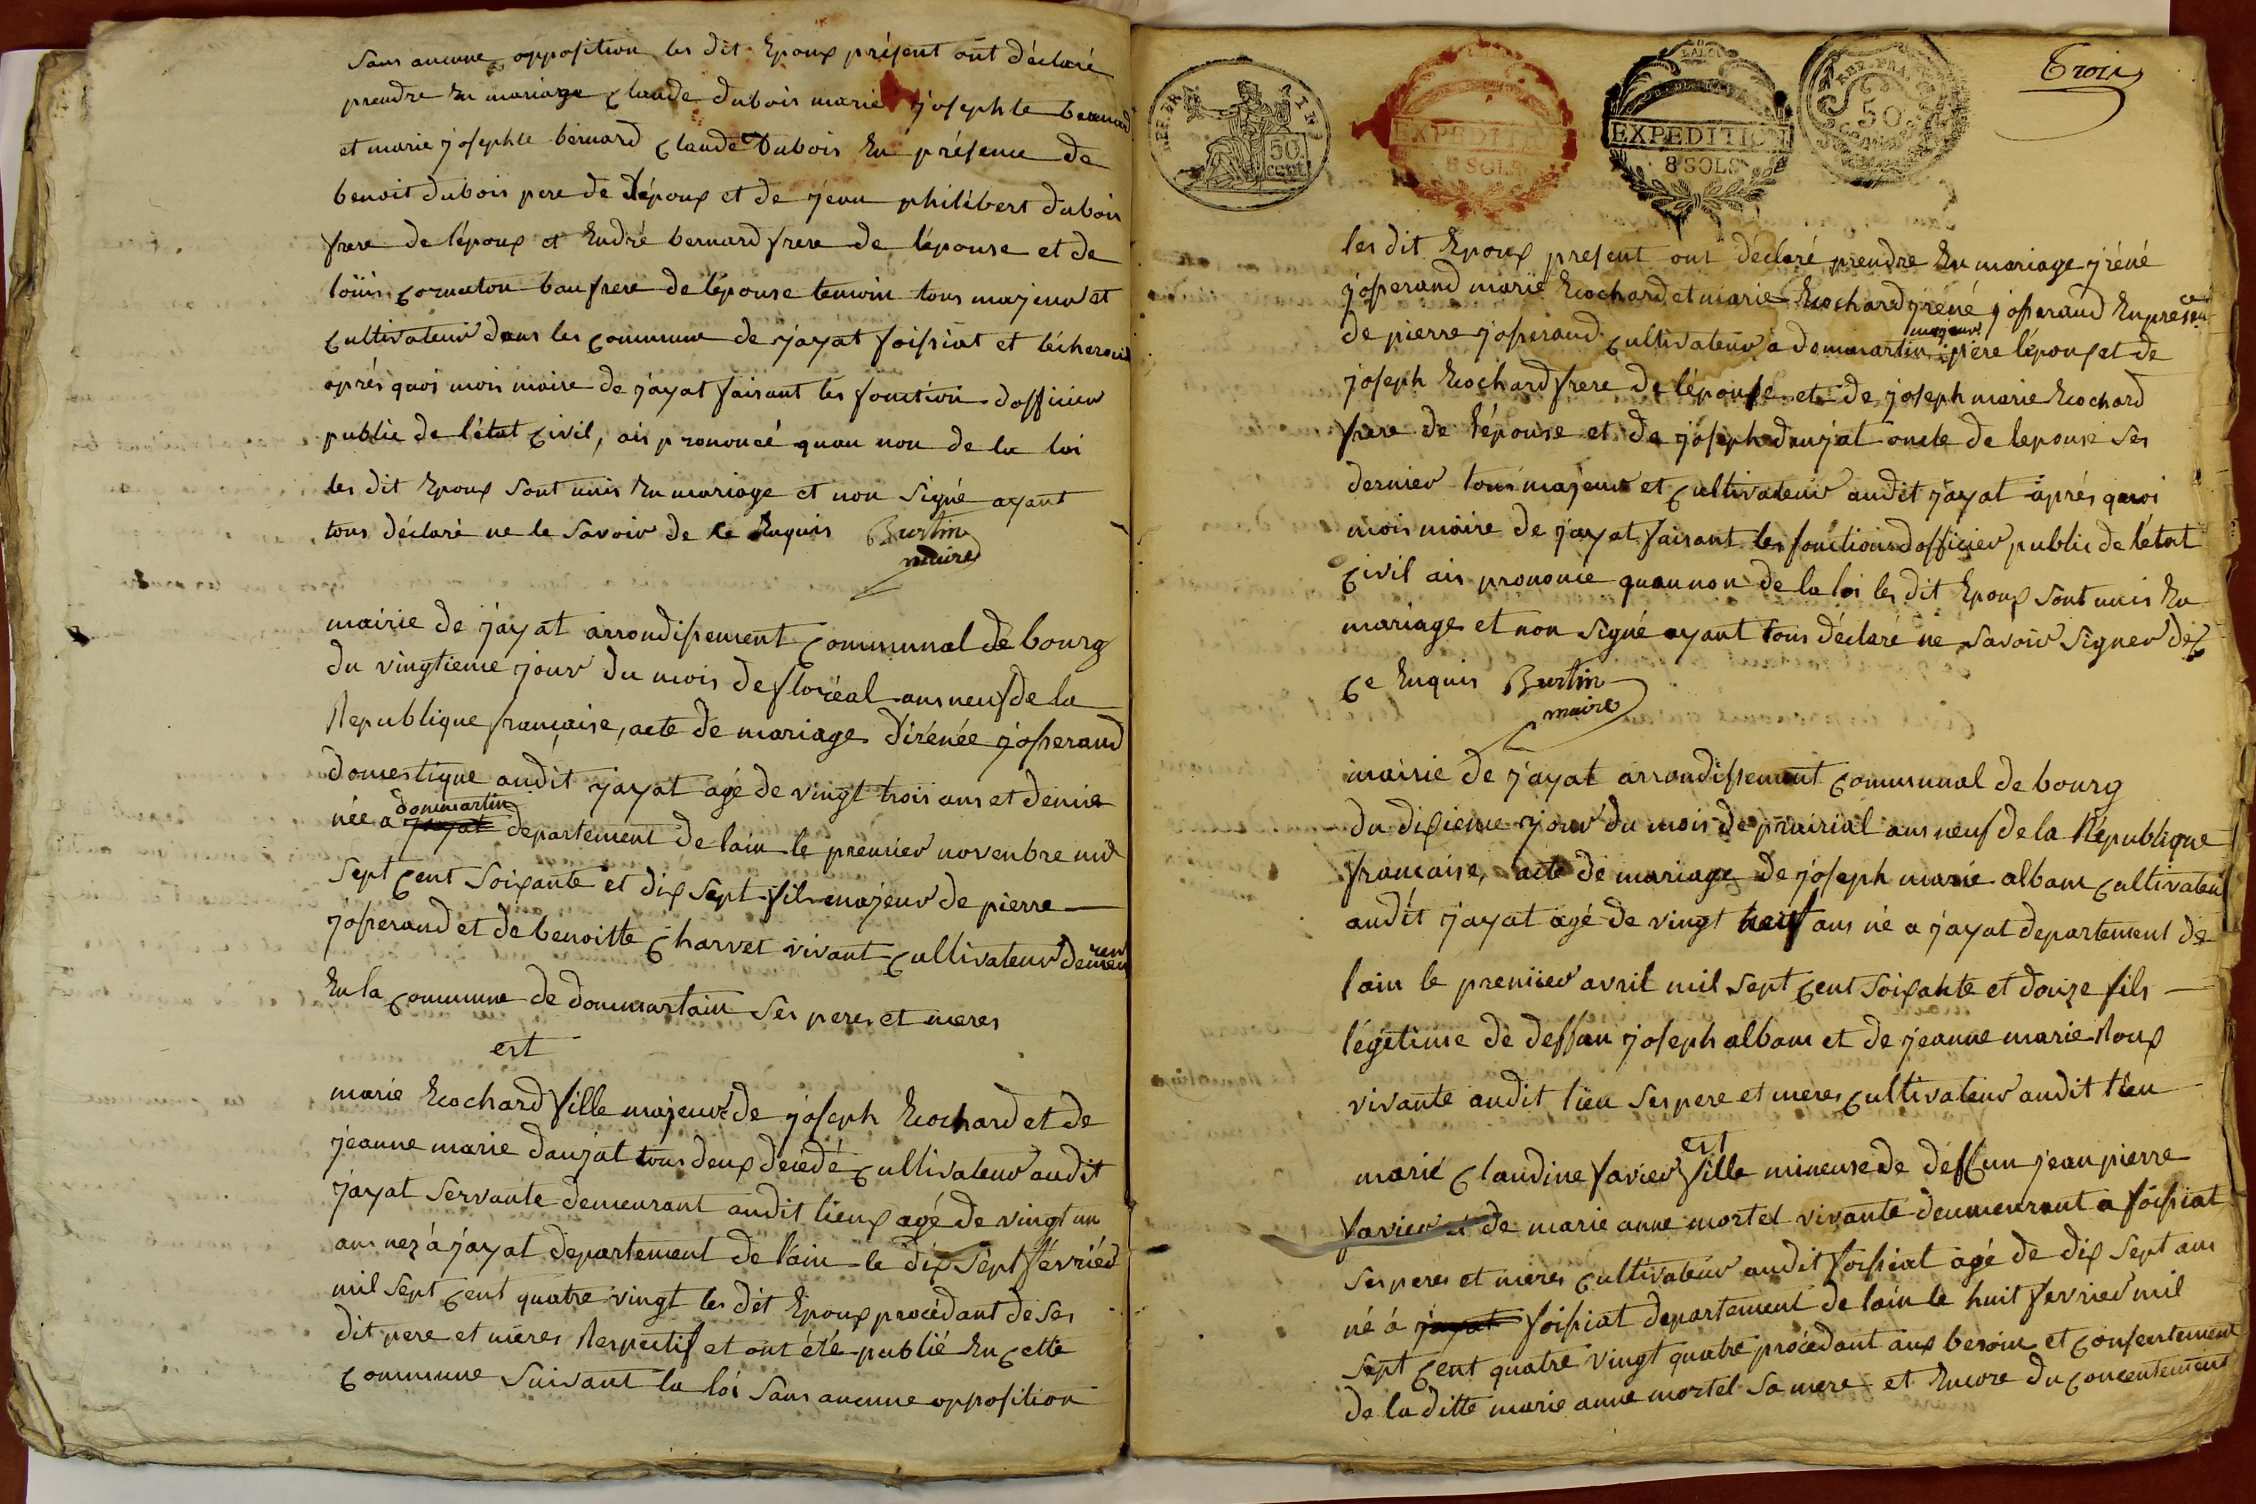 sans aucune opposition les dit Epoux présent ont déclaré
prendre En mariage Claude dubois marie josephte bernard
et marie josephte bernard Claude Dubois En présence de
benoit dubois pere de lépoux et de jean philibert dubois
frere de lépoux et André bernard frere de lépouse et de
loüis cornaton beaufrere de lépouse temoin tous majeur et
Cultivateur dans les commune de jayat foissiat et lécheroux
aprés quoi mois maire de jayat faisant les fonction dofficier
public de létat Civil, ais prononcé quau non de la loi
les dit Epoux sont unis En mariage et non signé ayant
tous déclaré ne le savoir de ce Enquis Burtin
maire
mairie de jayat arrondissement Communal de bourg
du vingtieme jour du mois de floréal ans neuf de la
Republique française, acte de mariage dirénée josserand
domestique audit jayat agé de vingt trois ans et demie
née a dommartin departement de lain le premier novenbre mil
sept Cent soixante et dix sept fils majeur de pierre
josserand et de benoitte Charvet vivant Cultivateur demeur
En la commune de dommartain ses peres et meres
est
marie Ecochard fille majeur de joseph Ecochard et de
jeanne marie daujat tous deux décédé Cultivateur audit
jayat servante demeurant audit lieux agé de vingt un
ans nez à jayat departement de lain le dix sept février
mil sept Cent quatre vingt les dit Epoux procédant de ses
dit pere et mères Respectif et ont été publié En Cette
Commune suivant la loi sans aucune opposition
REP. FRA
50
cent
EXPEDITION
8 SOLS
EXPEDITION
8 SOLS
REP. FRA
50
Trois
les dit Epoux present ont déclaré prendre En mariage jréné
josserand marie Ecochard et marie Ecochard jréné josserand En présence
de pierre josserand Cultivateur à dommartin majeur pere lépoux et de
joseph Ecochard frere de lépouse et de joseph marie Ecochard
frere de lépouse et de joseph daujat oncle de lepouse ses
dernier tous majeur et Cultivateur audit jayat aprés quoi
mois maire de jayat faisant les fonctions dofficier public de létat
Civil ais prononcé quau non de la loi les dit Epoux sont unis En
mariage et non signé ayant tous déclaré ne savoir signer de
Ce Enquis Burtin
maire
mairie de jayat arrondissement Communal de bourg
du dixieme jour du mois de prairial ans neuf de la République
française, acte de mariage de joseph marie albam Cultivateur
audit jayat agé de vingt neuf ans né a jayat departement de
lain le premier avril mil sept Cent soixante et douze fils
légitime de deffun joseph albam et de jeanne marie Roux
vivante audit lieu ses pere et meres Cultivateur audit lieu
est
marié Claudine favier fille mineuse de deffun jean pierre
favier et de marie anne mortel vivante deumeurant a foissiat
ses peres et mères Cultivateur audit foissiat agé de dix sept ans
né à jayat foissiat departement de lain le huit fevrier mil
sept Cent quatre vingt quatre procédant aux besoin et Consentement
de la ditte marie anne mortel sa mere et Encore du Concentement